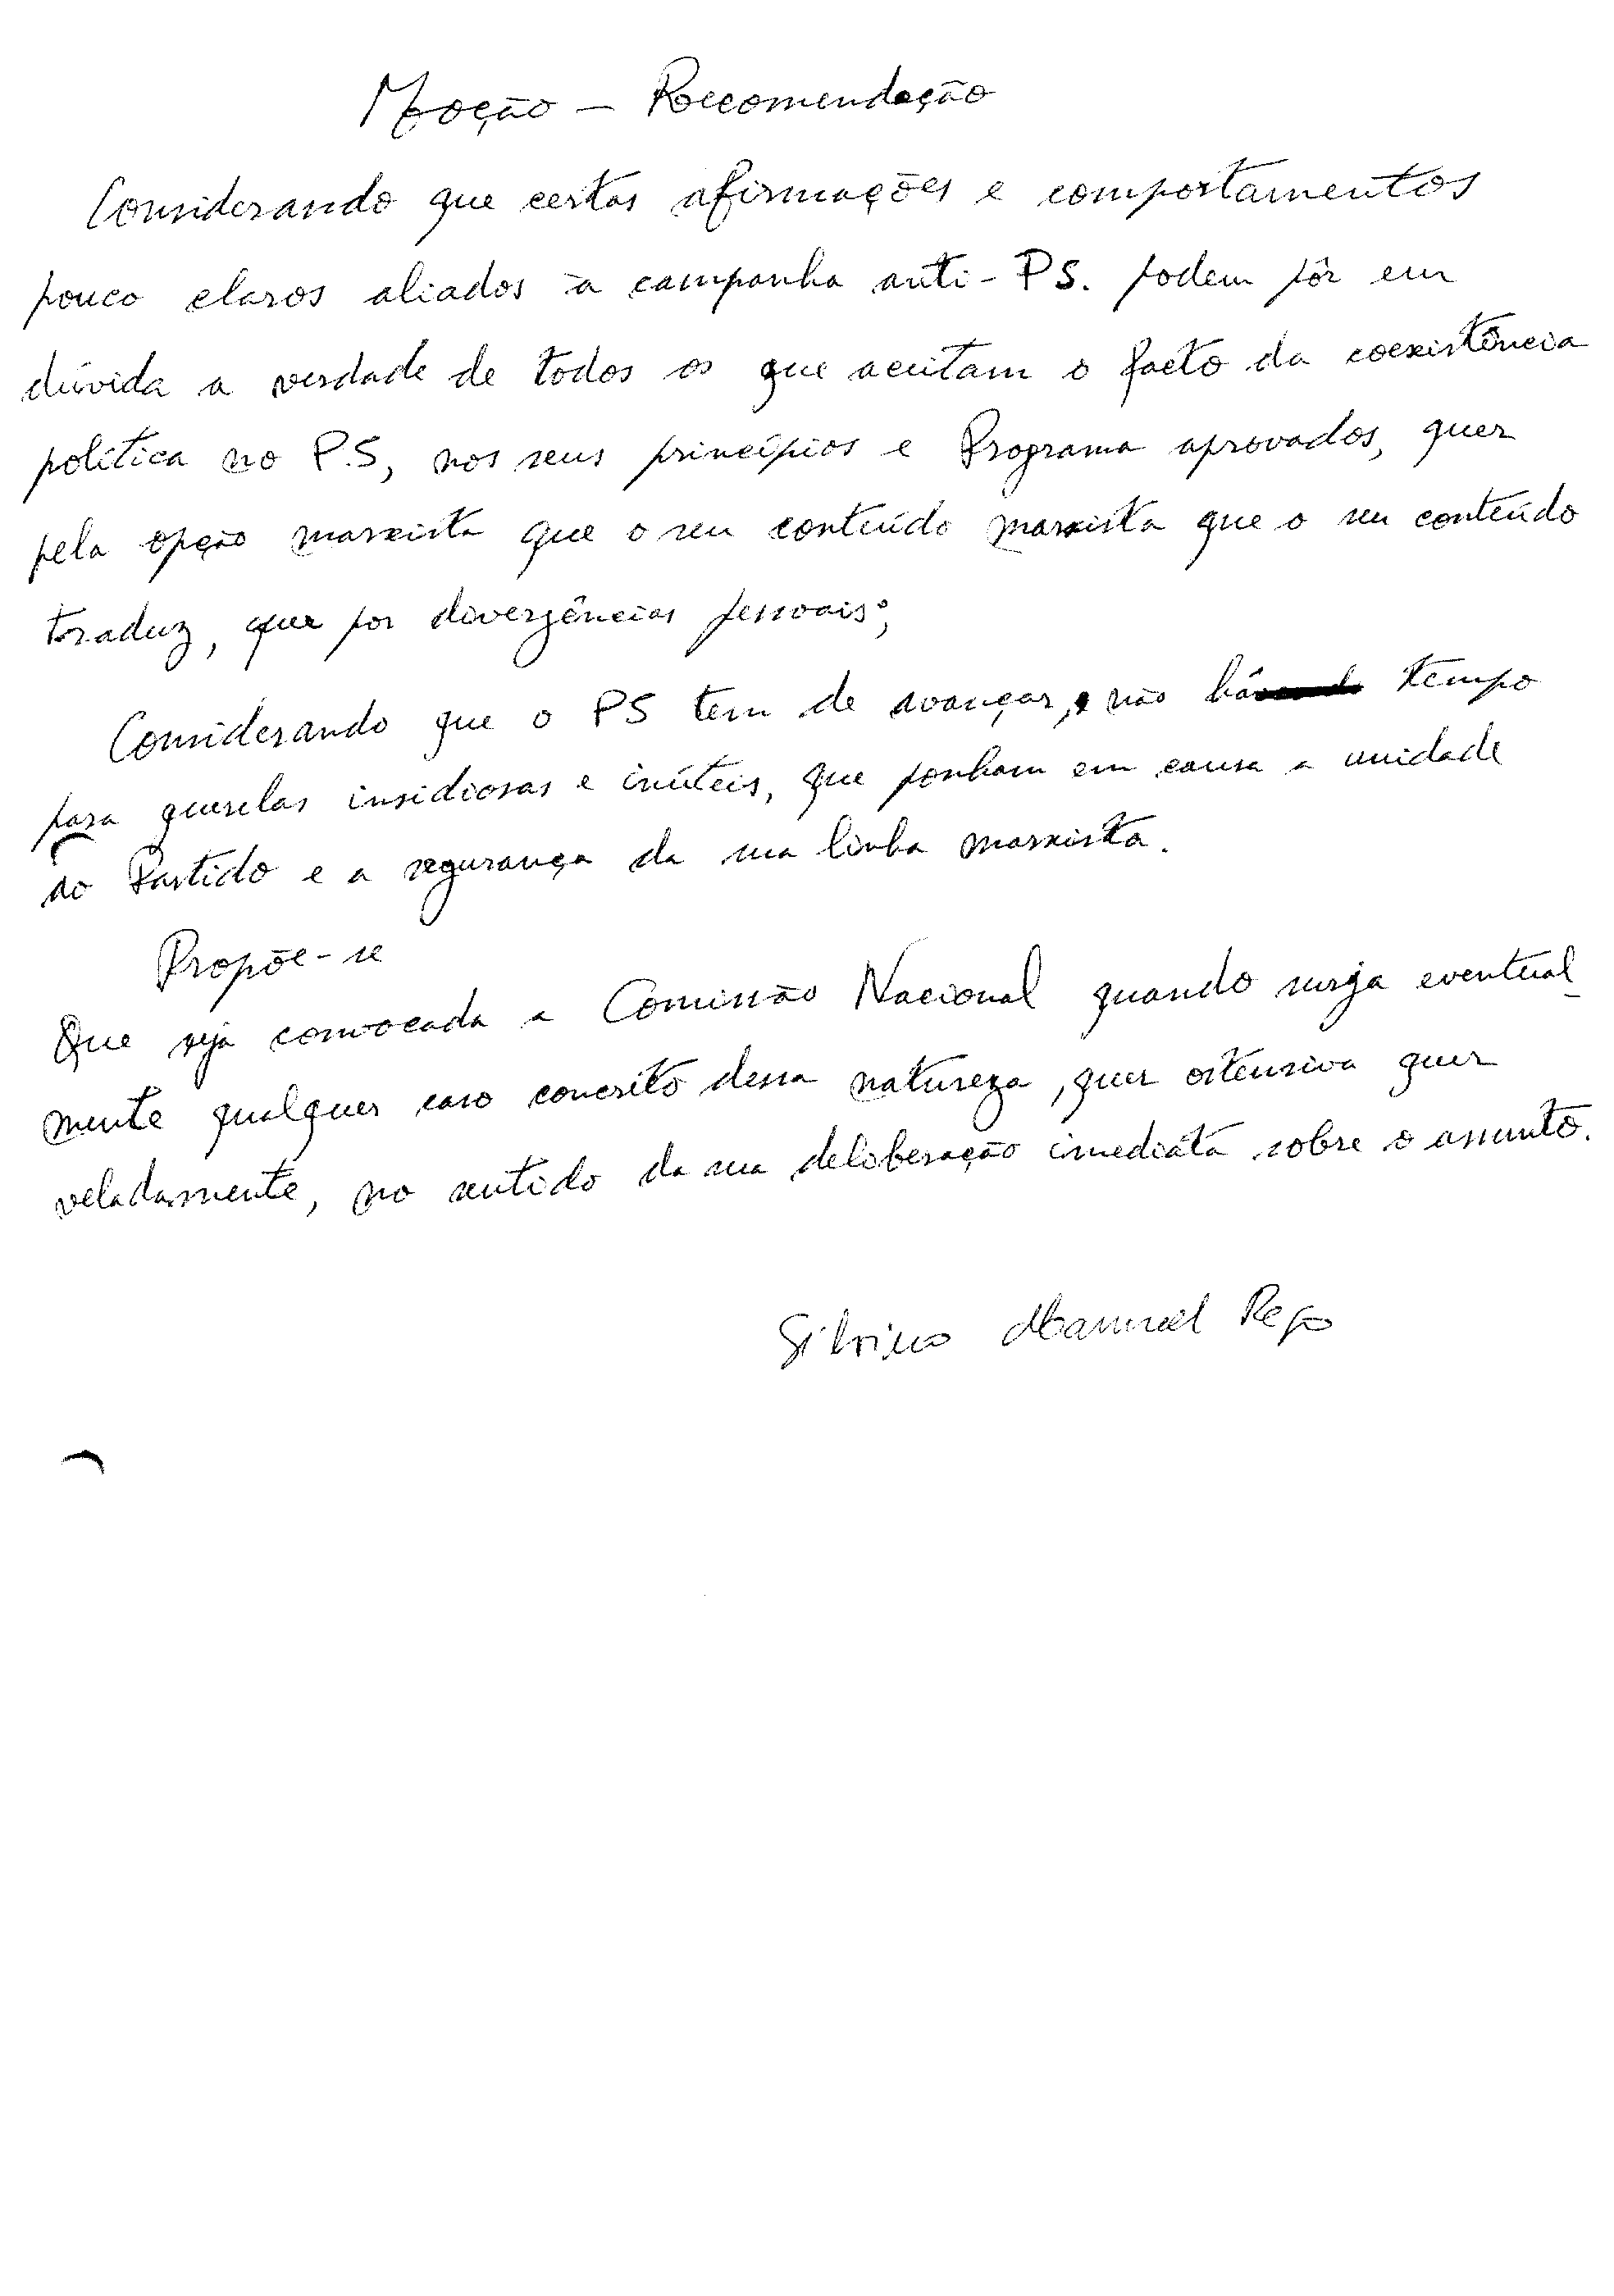 Moção - Recomendação
Considerando que certas afirmações e comportamentos
pouco claros aliados à campanha anti-PS. podem pôr em
dúvida a verdade de todos os que aceitam o facto da coexistência
política no P.S, nos seus princípios e Programa aprovados, quer
pela opção marxista que o seu conteúdo marxista que o seu conteúdo
traduz, quer por divergências pessoais;
Considerando que o PS tem de avançar, não há tempo
para querelas insidiosas e inúteis, que ponham em causa a unidade
do Partido e a segurança da sua linha marxista.
Propõe-se
Que seja convocada a Comissão Nacional quando surja eventual-
mente qualquer caso concreto dessa natureza, quer ostensiva quer
veladamente, no sentido da sua deliberação imediata sobre o assunto.
Silvino Manuel Rego